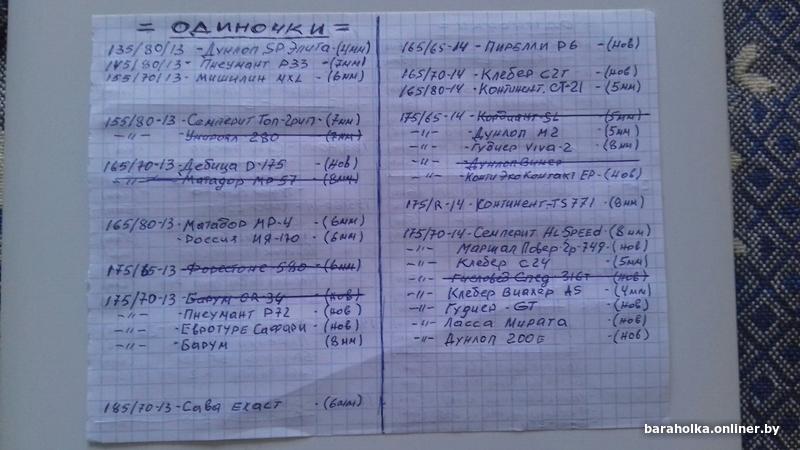 = ОДИНОЧКИ =
135/80/13 - Дунлоп SP Элита - (4мм)
145/80/13 - Пнеумант P33 - (7мм)
155/70/13 - Мишилин MXL - (6мм)
155/80-13 - Семперит Топ-Грип - (7мм)
-"- - Унироял 280 - (7мм)
165/70-13 - Дебица D-175 - (нов)
-"- - Матадор МР-57 - (8мм)
165/80-13 - Матадор МР-4 - (6мм)
- Россия ИЯ-170 - (6мм)
175/65-13 - Форестоне 580 - (6мм)
175/70-13 - Барум OR-34 - (нов)
-"- - Пнеумант P72 - (нов)
-"- - Евротуре Саффари - (нов)
-"- - Барум (8мм)
185/70-13 - Сава Ехаст - (6мм)
165/65-14 - Пирелли P6 - (нов)
165/70-14 - Клебер C2T - (нов)
165/80-14 - Континент. CT-21 - (5мм)
175/65-14 - Кордиант SL - (5мм)
-"- - Дунлоп М2 - (5мм)
-"- - Гудиер Viva-2 - (8мм)
-"- - Дунлоп Винер
-"- - Конти Эко Контакт EP - (нов)
175/R-14 - Континент-TS771 - (8мм)
175/70-14 - Семперит HLSPEED - (8мм)
-"- Маршал Повер Гр-749 - (нов)
-"- Клебер C24 - (5мм)
-"- - Спед 316T - (нов)
-"- Клебер Виахер AS - (4мм)
-"- - Гудиер - GT - (нов)
-"- - Ласса Мирата - (нов)
-"- Дунлоп 200E - (нов)
baraholka.onliner.by